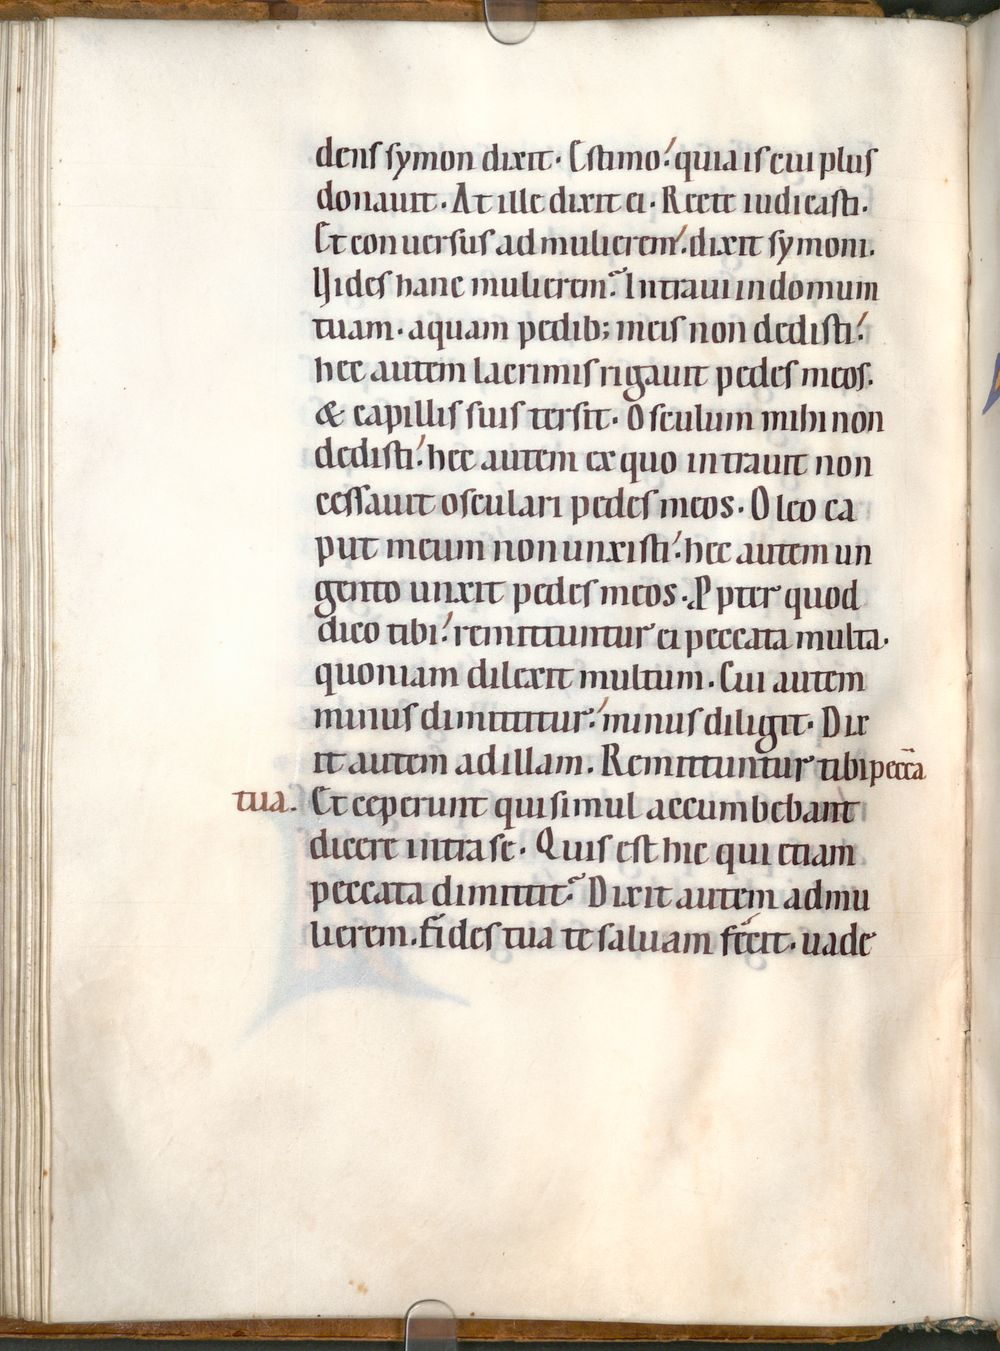 dens symon dixit. Estimo: quia is cui plus
donauit. At ille dixit ei. Recte iudicasti.
Et conuersus ad mulierem: dixit symoni.
Uides hanc mulierem? Intraui in domum
tuam. aquam pedib; meis non dedisti:
hec autem lacrimis rigauit pedes meos.
& capillis suis tersit. Osculum mihi non
dedisti: hec autem ex quo intrauit non
cessauit osculari pedes meos. Oleo ca
put meum non unxisti: hec autem un
gento unxit pedes meos. Ppter quod
dico tibi: remittuntur ei peccata multa.
quoniam dilexit multum. Cui autem
minus dimittitur: minus diligit. Dix
it autem ad illam. Remittuntur tibi pecc̄a
tua. Et ceperunt qui simul accumbebant
dicere intra se. Quis est hic qui etiam
peccata dimittit? Dixit autem ad mu
lierem. fides tua te saluam fecit. uade